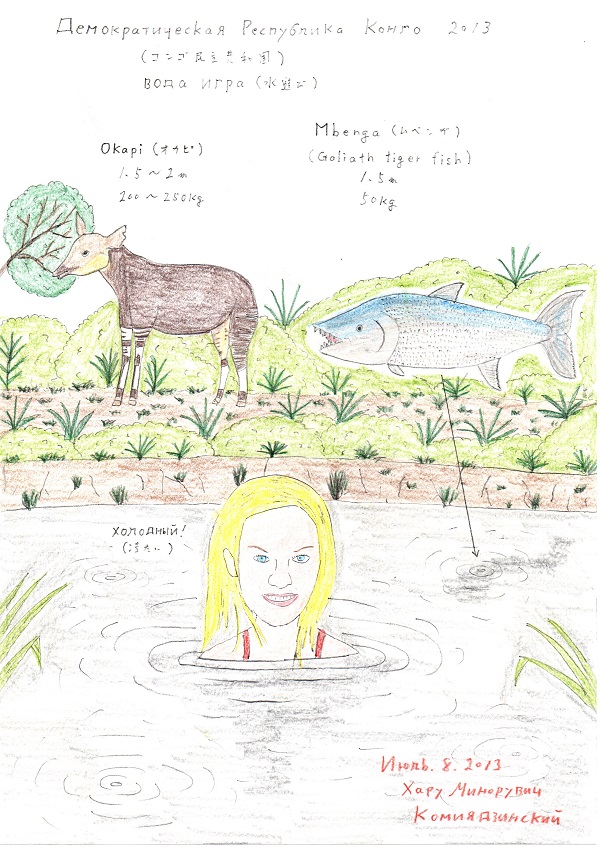 Демократическая Республика Конго 2013
(コンゴ民主共和国)
вода игра (水遊び)
Okapi (オカピ)
1.5～2m
200～250kg
Mbenga (ムベンガ)
(Goliath tiger fish)
1.5m
50kg
холодный!
(冷たい)
Июль. 8. 2013
Хару Минорувич
Комиядзинский